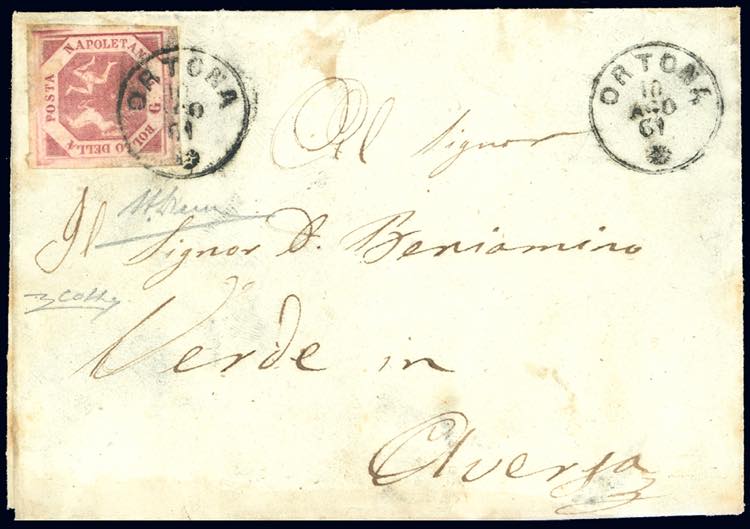 POSTA NAPOLETANA
BOLLO DELLA
G
ORTONA
10
AGO
61
ORTONA
10
AGO
61
Al Signor
Il Signor D. Beniamino
Verde in
Aversa